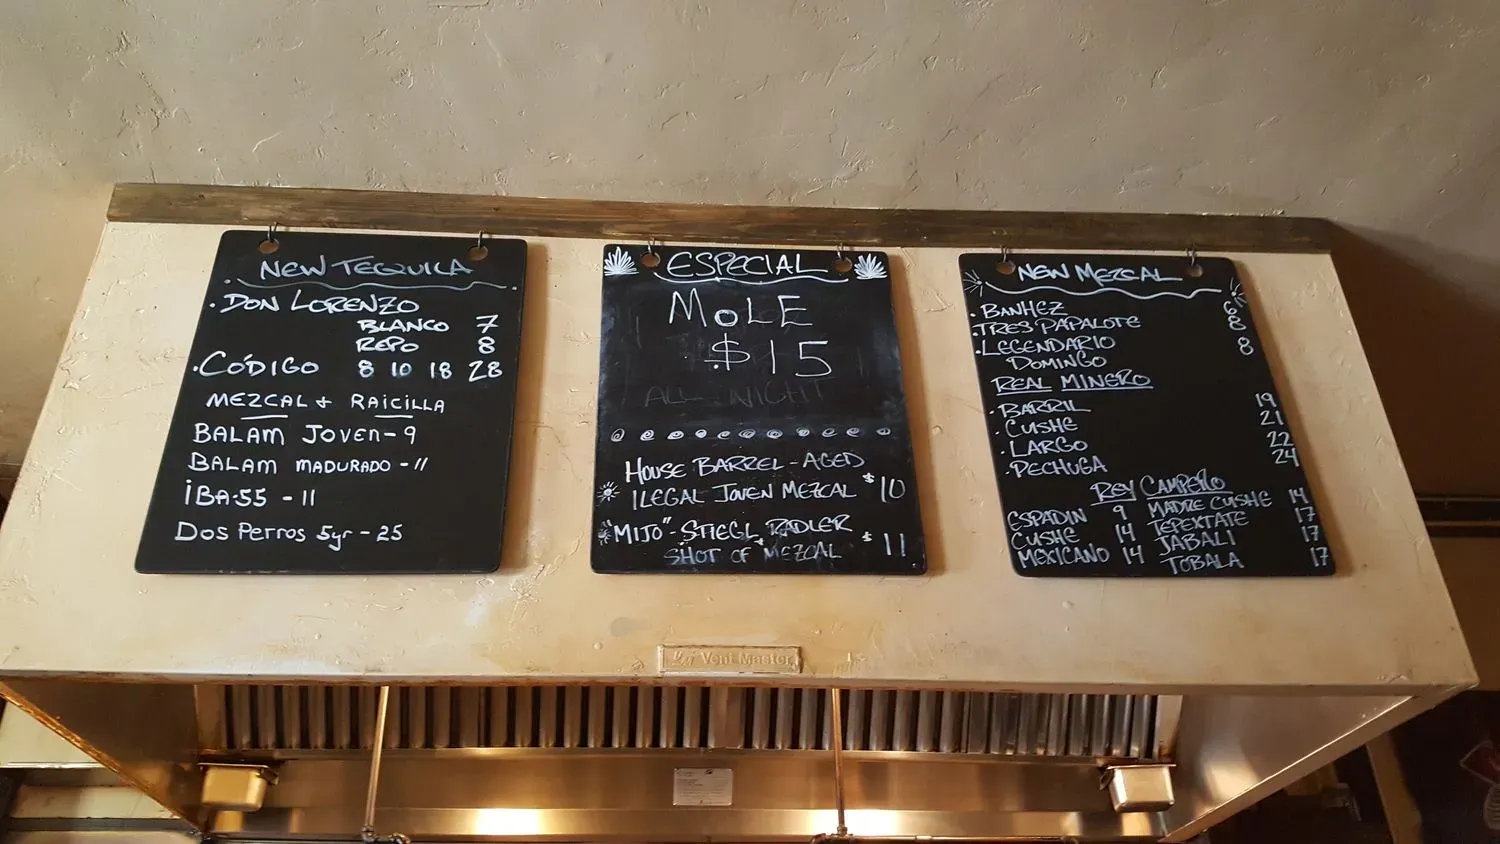 NEW TEQUILA
·DON LORENZO
BLANCO 7
REPO 8
·CÓDIGO 8 10 18 28
MEZCAL + RAICILLA
BALAM JOVEN-9
BALAM MADURADO-11
IBA-55 - 11
DOS PERROS 5yr-25
ESPECIAL
MOLE
$15
ALL NIGHT
HOUSE BARREL-AGED
ILEGAL JOVEN MEZCAL $10
"MIJO"-STIEGL RADLER
SHOT OF MEZCAL $11
NEW MEZCAL
·BANHEZ 6
·TRES PAPALOTE 8
·LEGENDARIO 8
DOMINGO
REAL MINERO
·BARRIL 19
·CUSHE 21
·LARGO 22
·PECHUGA 24
REY CAMPERO
ESPADIN 9 MADRE CUSHE 14
CUSHE 14 TEPEXTATE 17
MEXICANO 14 JABALI 17
TOBALA 17
Vent Master